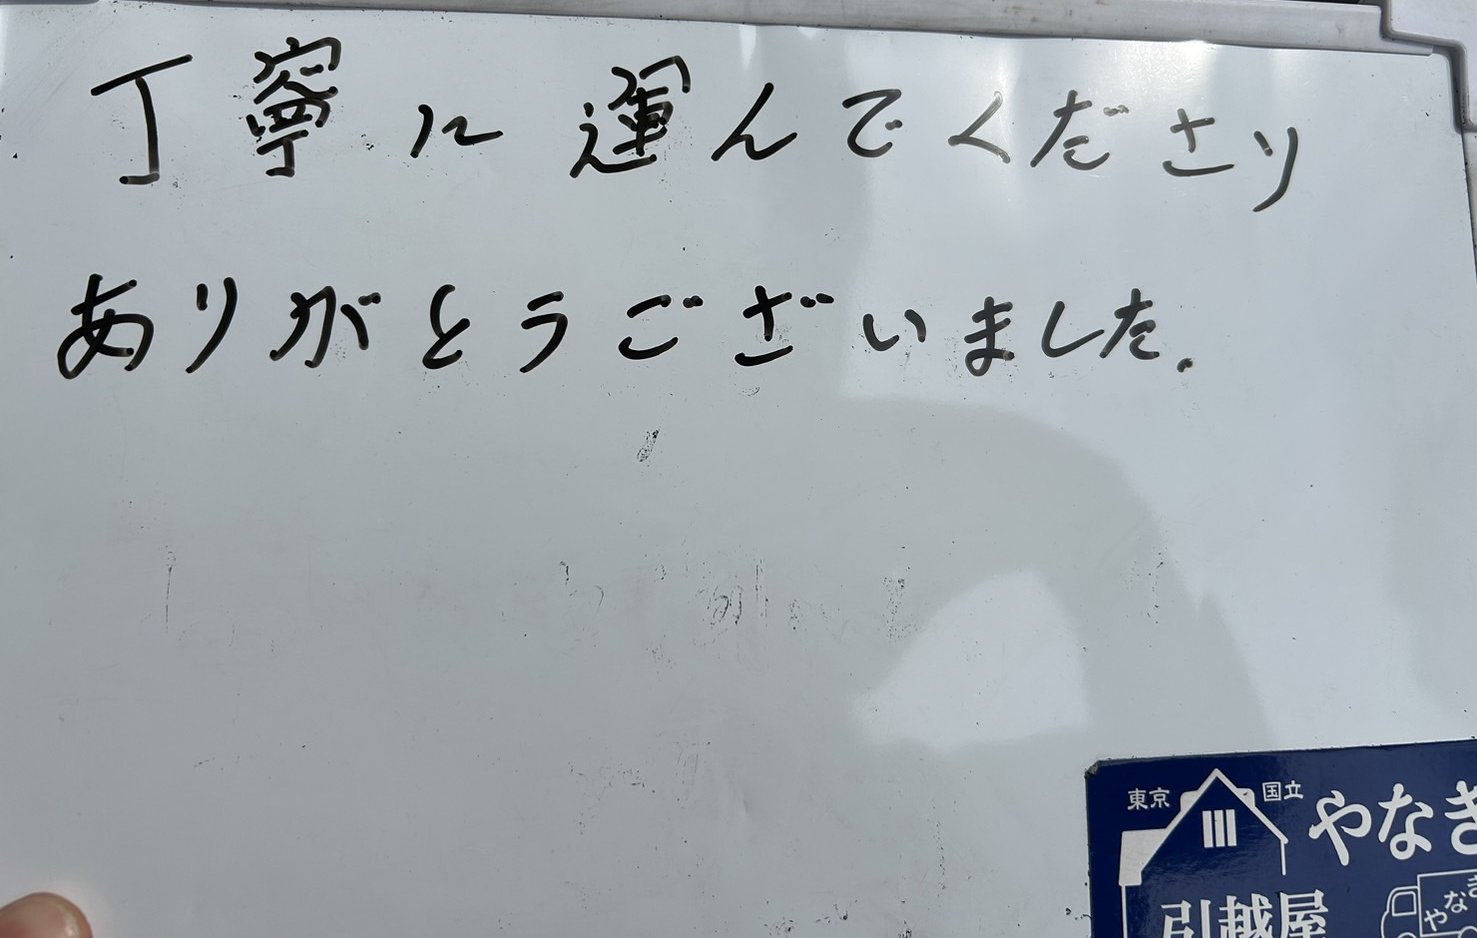 丁寧に運んでくださり
ありがとうございました.
東京 国立 やなき
引越屋
やなき